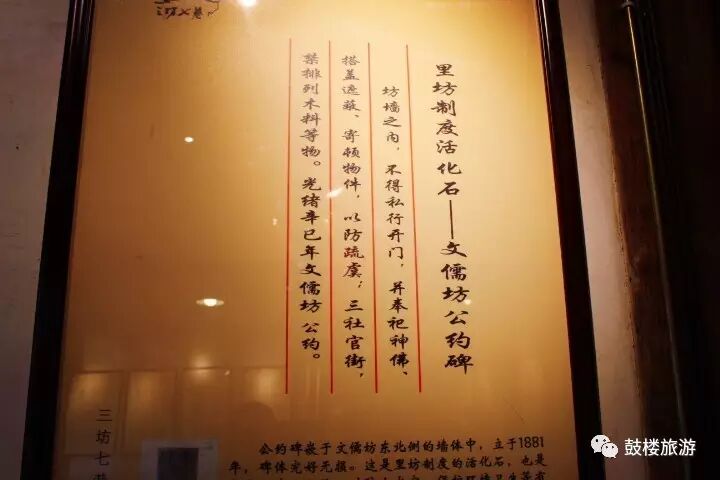 里坊制度活化石——文儒坊公约碑
坊墙之内，不得私行开门，并奉祀神佛、
搭盖遮蔽、寄顿物件，以防疏虞；三社官街，
禁排列木料等物。光绪辛巳年文儒坊公约。
三坊七巷
公约碑嵌于文儒坊东北侧的墙体中，立于1881
年，碑体完好无损。这是里坊制度的活化石，也是
鼓楼旅游